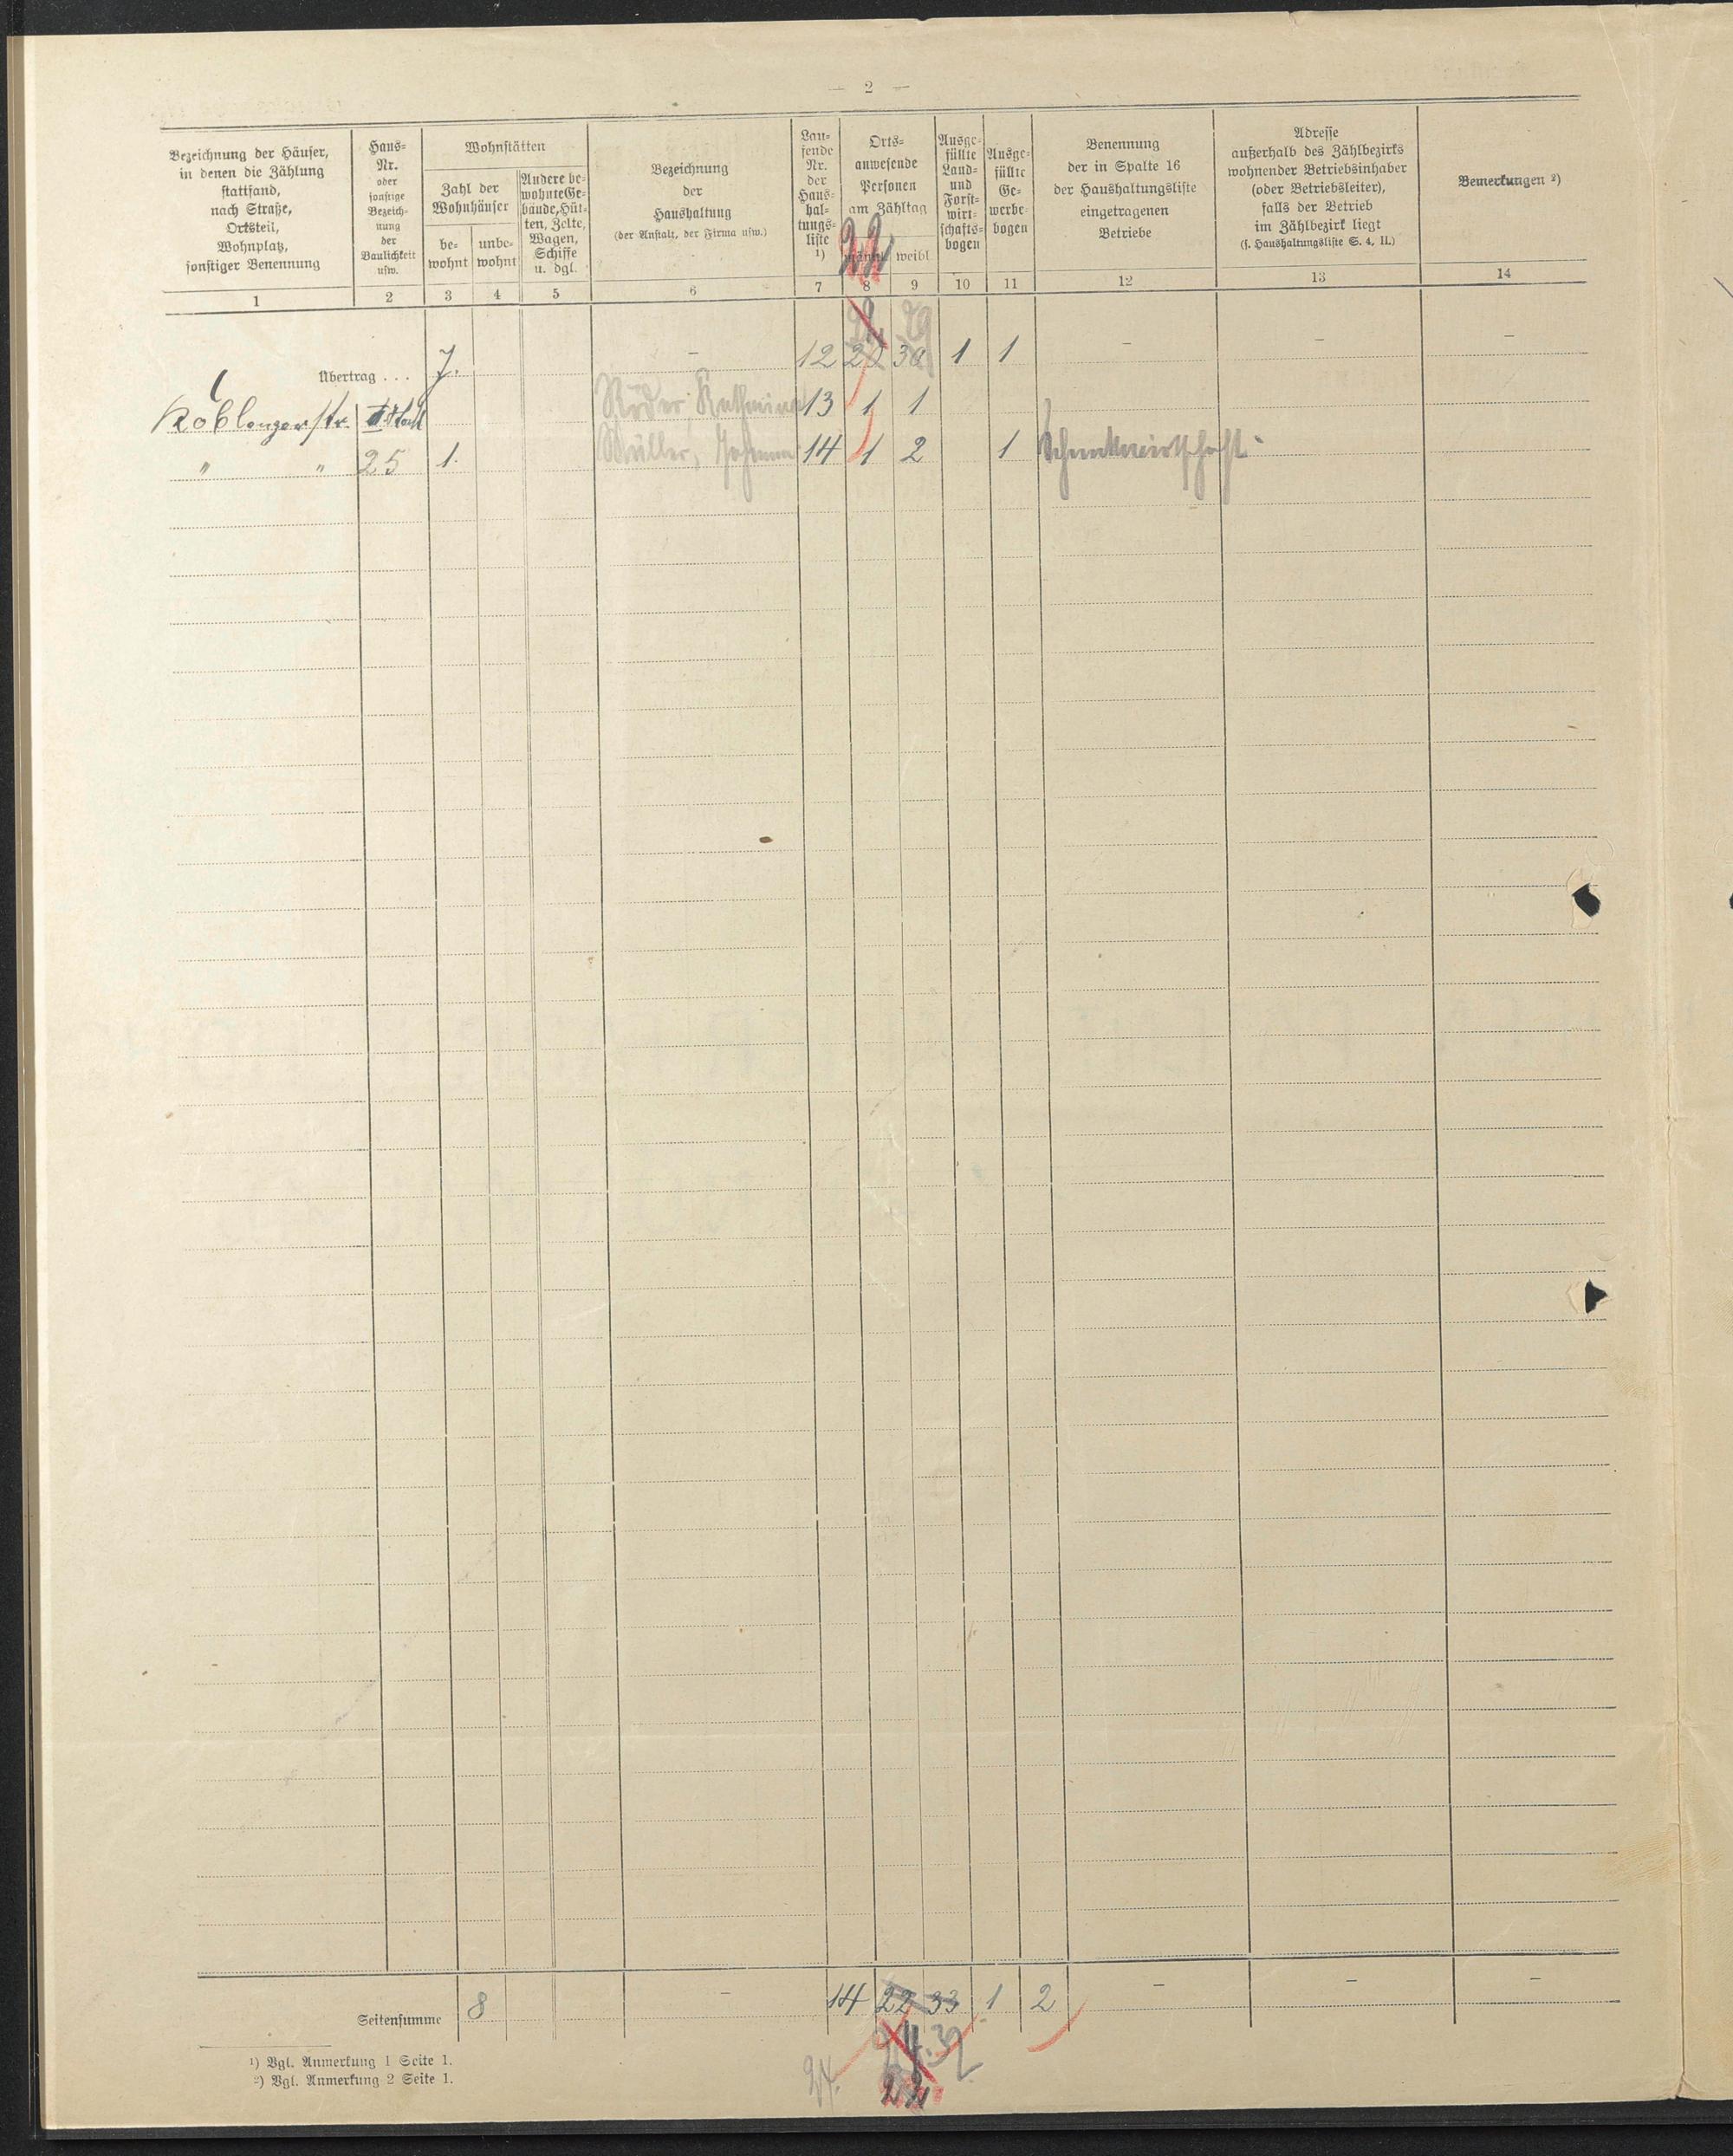 — 2 —
Bezeichnung der Häuser,
in denen die Zählung
stattfand,
nach Straße,
Ortsteil,
Wohnplatz,
sonstiger Benennung
Haus-
Nr.
oder
sonstige
Bezeich-
nung
der
Baulichkeit
usw.
Wohnstätten
Zahl der
Wohnhäuser
be-
wohnt
unbe-
wohnt
Andere be-
wohnte Ge-
bäude, Hüt-
ten, Zelte,
Wagen,
Schiffe
u. dgl.
Bezeichnung
der
Haushaltung
(der Anstalt, der Firma usw.)
Lau-
fende
Nr.
der
Haus-
hal-
tungs-
liste
1)
Orts-
anwesende
Personen
am Zähltag
männl. weibl.
22
Ausge-
füllte
Land-
und
Forst-
wirt-
schafts-
bogen
Ausge-
füllte
Ge-
werbe-
bogen
Benennung
der in Spalte 16
der Haushaltungsliste
eingetragenen
Betriebe
Adresse
außerhalb des Zählbezirks
wohnender Betriebsinhaber
(oder Betriebsleiter),
falls der Betrieb
im Zählbezirk liegt
(s. Haushaltungsliste S. 4, II.)
Bemerkungen 2)
1 2 3 4 5 6 7 8 9 10 11 12 13 14
29
Übertrag . . . 7. – 12 30 1 1 – – –
Koblenzerstr. Röder 13 1 1
" " 25 1. Müller, Johann 14 1 2 1 Schankwirtschaft
Seitensumme 8 – 14 22 33 1 2 – – –
32
24.
1) Vgl. Anmerkung 1 Seite 1.
2) Vgl. Anmerkung 2 Seite 1.